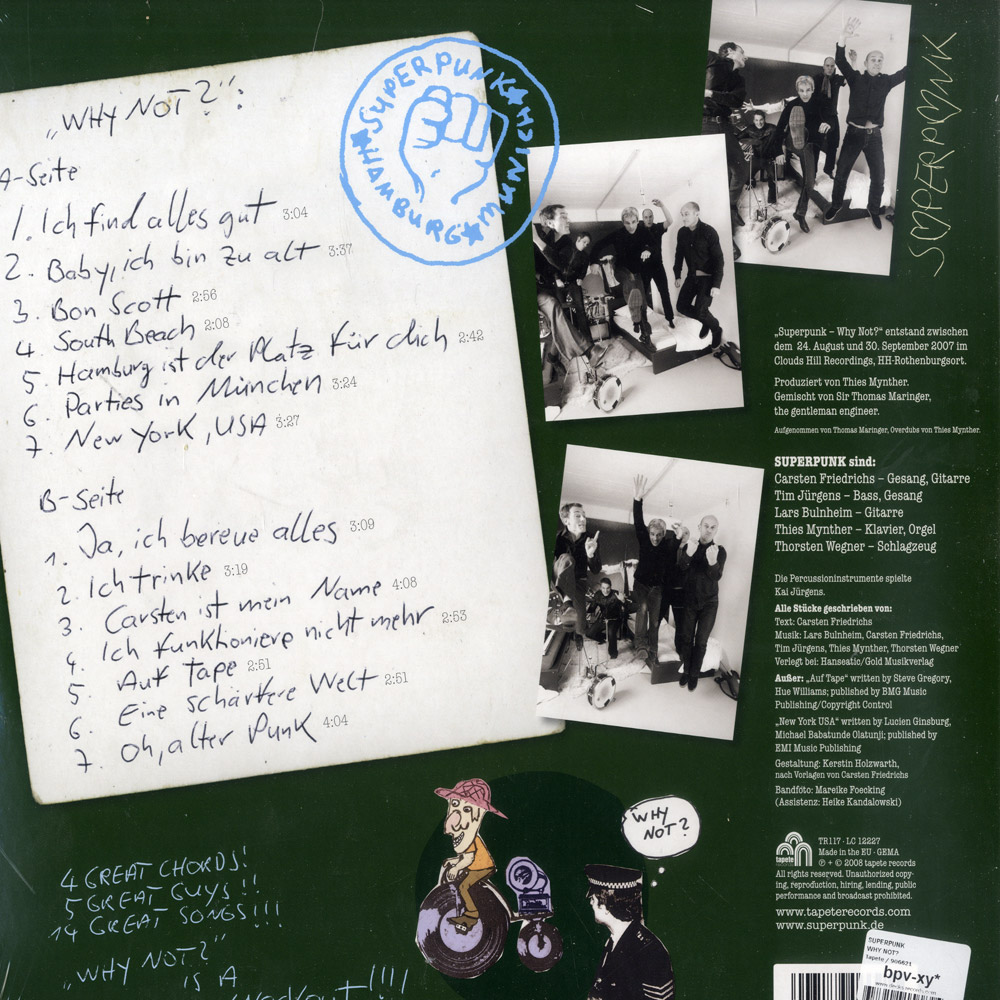 „WHY NOT?“:
A-Seite
1. Ich find alles gut 3:04
2. Baby, ich bin zu alt 3:37
3. Bon Scott 2:56
4. South Beach 2:08
5. Hamburg ist der Platz für dich 2:42
6. Parties in München 3:24
7. New York, USA 3:27
B-Seite
1. Ja, ich bereue alles 3:09
2. Ich trinke 3:19
3. Carsten ist mein Name 4:08
4. Ich funktioniere nicht mehr 2:53
5. Auf Tape 2:51
6. Eine schärfere Welt 2:51
7. Oh, alter Punk 4:04
SUPERPUNK ★ MUNICH ★ HAMBURG ★
SUPERPUNK
„Superpunk – Why Not?“ entstand zwischen
dem 24. August und 30. September 2007 im
Clouds Hill Recordings, HH-Rothenburgsort.
Produziert von Thies Mynther.
Gemischt von Sir Thomas Maringer,
the gentleman engineer.
Aufgenommen von Thomas Maringer, Overdubs von Thies Mynther.
SUPERPUNK sind:
Carsten Friedrichs – Gesang, Gitarre
Tim Jürgens – Bass, Gesang
Lars Bulnheim – Gitarre
Thies Mynther – Klavier, Orgel
Thorsten Wegner – Schlagzeug
Die Percussioninstrumente spielte
Kai Jürgens.
Alle Stücke geschrieben von:
Text: Carsten Friedrichs
Musik: Lars Bulnheim, Carsten Friedrichs,
Tim Jürgens, Thies Mynther, Thorsten Wegner
Verlegt bei: Hanseatic/Gold Musikverlag
Außer: „Auf Tape“ written by Steve Gregory,
Hue Williams; published by BMG Music
Publishing/Copyright Control
„New York USA“ written by Lucien Ginsburg,
Michael Babatunde Olatunji; published by
EMI Music Publishing
Gestaltung: Kerstin Holzwarth,
nach Vorlagen von Carsten Friedrichs
Bandfoto: Mareike Foecking
(Assistenz: Heike Kandalowski)
tapete
TR117 · LC 12227
Made in the EU · GEMA
℗ + © 2008 tapete records
All rights reserved. Unauthorized copy-
ing, reproduction, hiring, lending, public
performance and broadcast prohibited.
www.tapeterecords.com
www.superpunk.de
WHY
NOT?
4 GREAT CHORDS!
5 GREAT GUYS!!
14 GREAT SONGS!!!
„WHY NOT?“
IS A
workout!!!!
SUPERPUNK
WHY NOT?
tapete / 906621
bpv-xy*